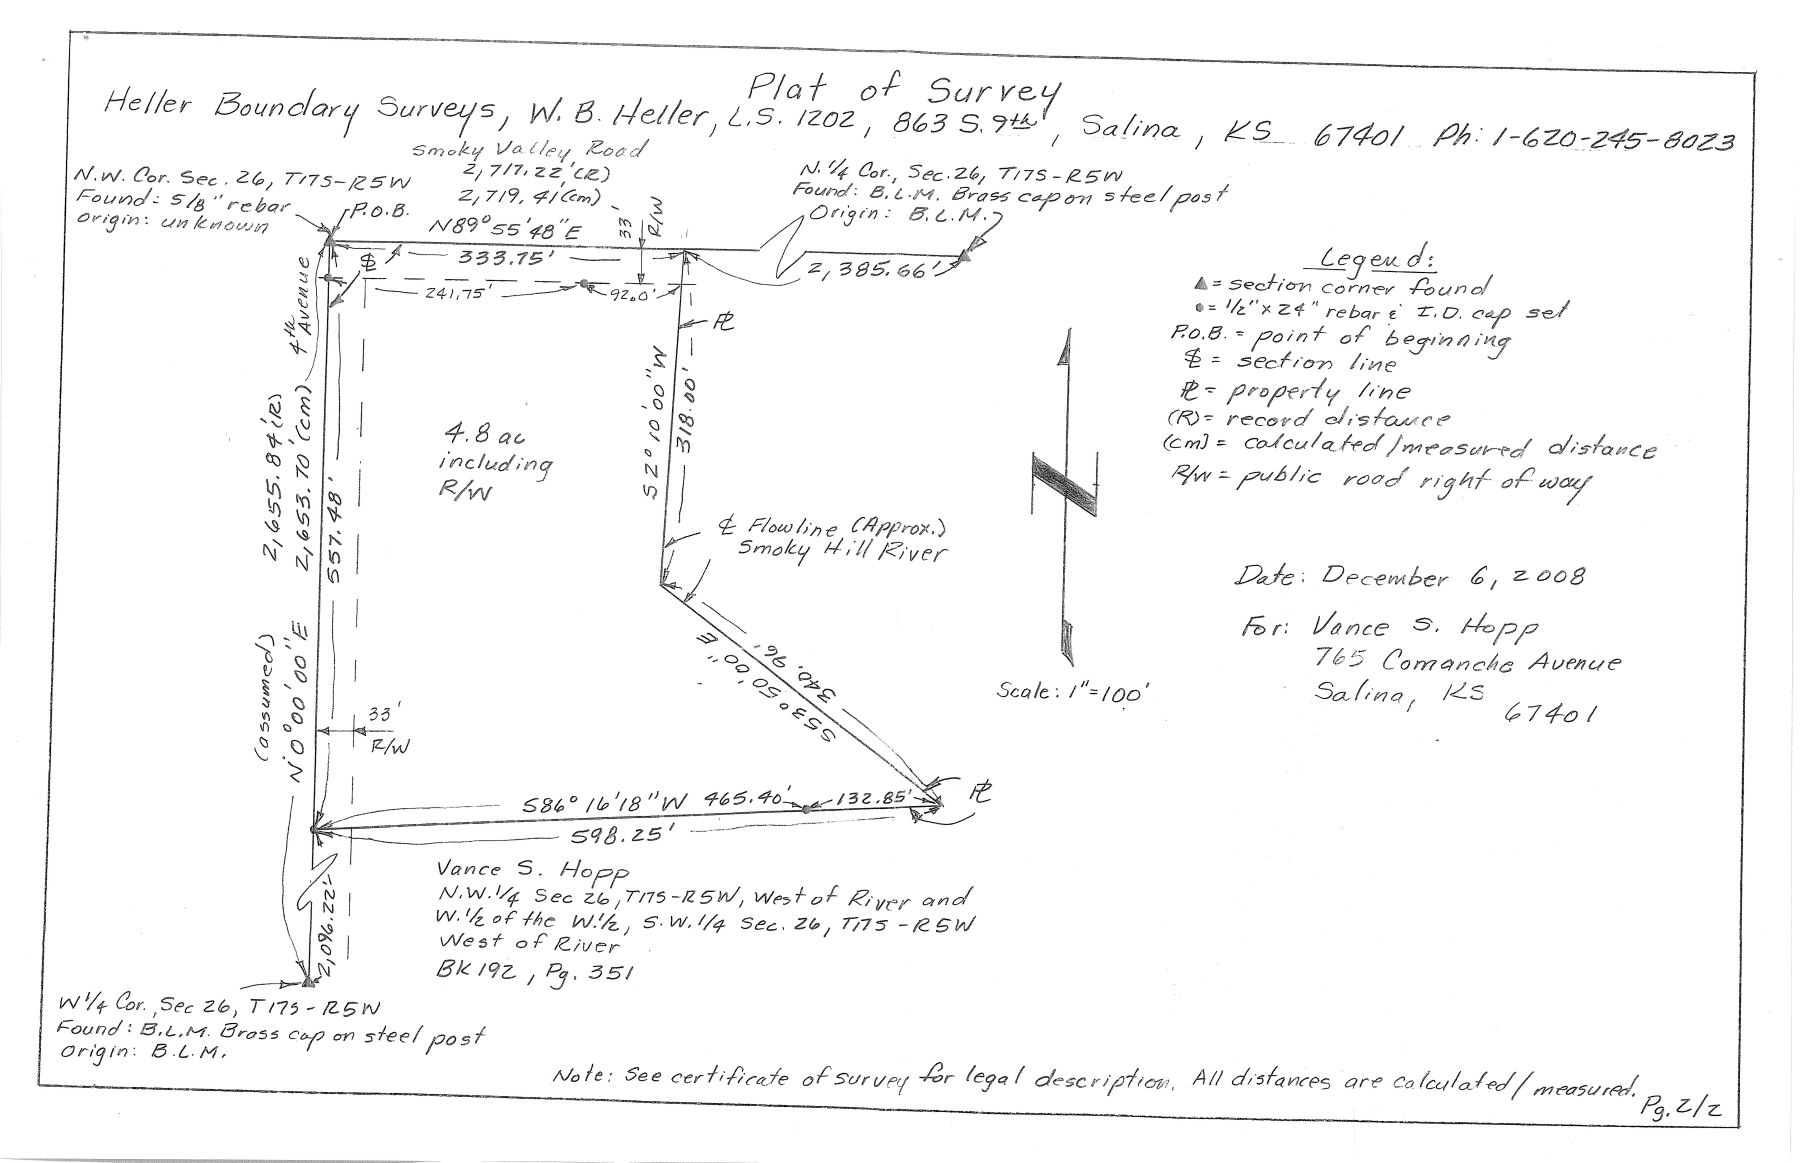 Plat of Survey
Heller Boundary Surveys, W. B. Heller, L.S. 1202, 863 S. 9th, Salina, KS 67401 Ph: 1-620-245-8023
Smoky Valley Road
2,717.22'(R)
2,719.41'(cm)
N.W. Cor. Sec. 26, T17S-R5W
Found: 5/8" rebar
Origin: unknown
P.O.B.
N89°55'48"E
333.75'
33'
R/W
N.1/4 Cor., Sec. 26, T17S-R5W
Found: B.L.M. Brass cap on steel post
Origin: B.L.M.
2,385.66'
241.75'
92.0'
4th Avenue
2,655.84'(R)
2,653.70'(cm)
557.48'
(assumed)
N0°00'00"E
4.8 ac
including
R/W
S2°10'00"W
318.00'
℄ Flowline (Approx.)
Smoky Hill River
S53°50'00"E
340.96'
33'
R/W
S86°16'18"W 465.40'
132.85'
598.25'
2,096.22'
Vance S. Hopp
N.W.1/4 Sec 26, T17S-R5W, West of River and
W.1/2 of the W.1/2, S.W.1/4 Sec. 26, T17S-R5W
West of River
BK 192, Pg. 351
W1/4 Cor., Sec 26, T17S-R5W
Found: B.L.M. Brass cap on steel post
Origin: B.L.M.
Legend:
▲ = section corner found
● = 1/2" x 24" rebar & I.D. cap set
P.O.B. = point of beginning
= section line
= property line
(R) = record distance
(cm) = calculated/measured distance
R/W = public road right of way
Scale: 1"=100'
Date: December 6, 2008
For: Vance S. Hopp
765 Comanche Avenue
Salina, KS
67401
Note: See certificate of survey for legal description. All distances are calculated/measured.
Pg. 2/2